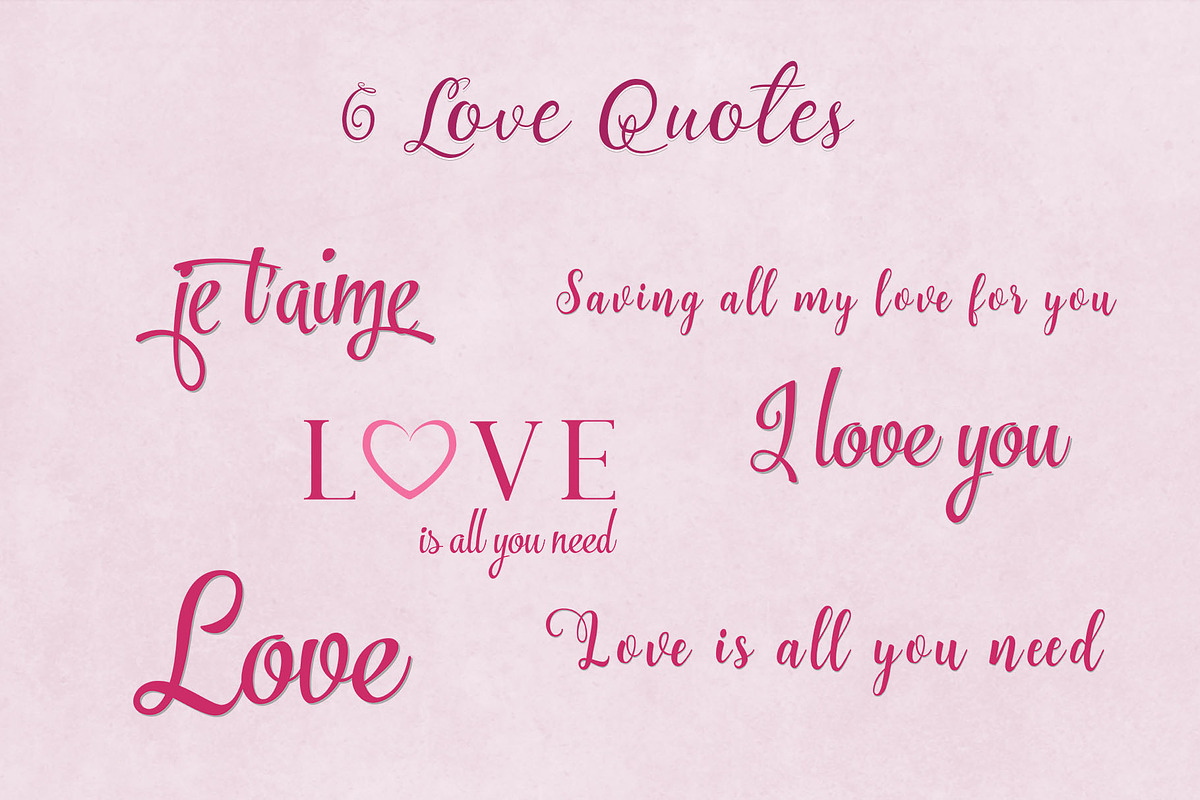 6 Love Quotes
je t'aime
Saving all my love for you
LOVE
is all you need
I love you
Love
Love is all you need